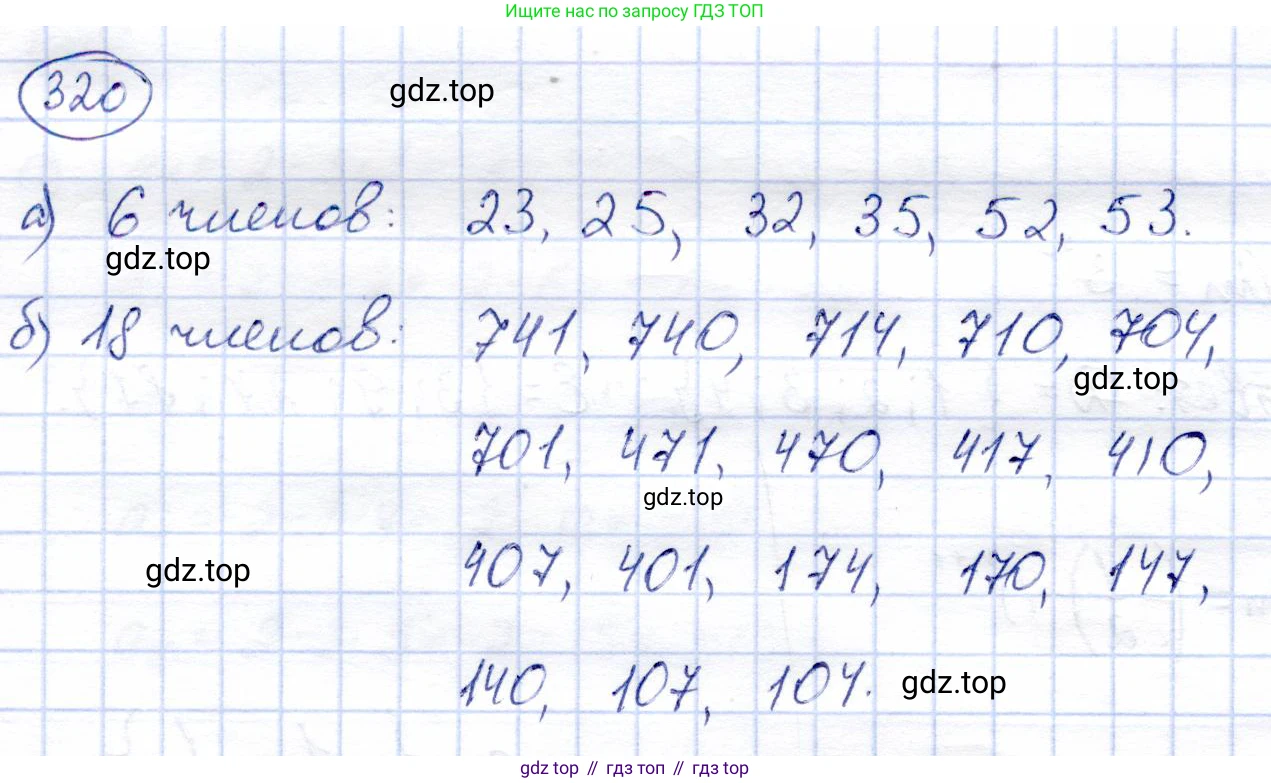 Ищите нас по запросу ГДЗ ТОП
320
gdz.top
а) 6 членов: 23, 25, 32, 35, 52, 53.
gdz.top
б) 18 членов: 741, 740, 714, 710, 704,
gdz.top
701, 471, 470, 417, 410,
gdz.top
407, 401, 174, 170, 147,
gdz.top
140, 107, 104.
gdz.top
gdz top // гдз топ // gdz top